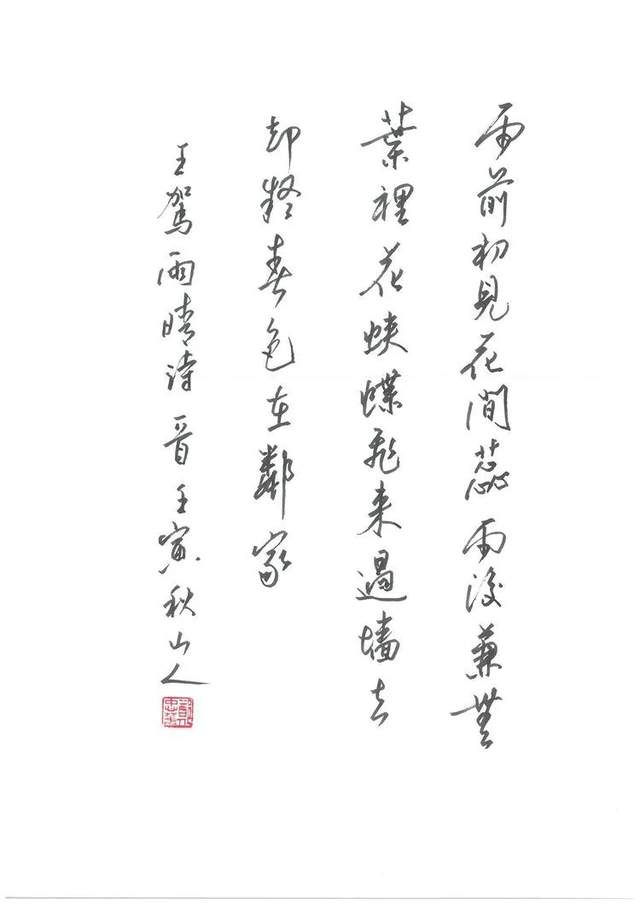 雨前初見花間蕊雨後兼無
葉裡花蛺蝶飛来過墻去
却疑春色在鄰家
王駕雨晴詩一首壬寅秋山人